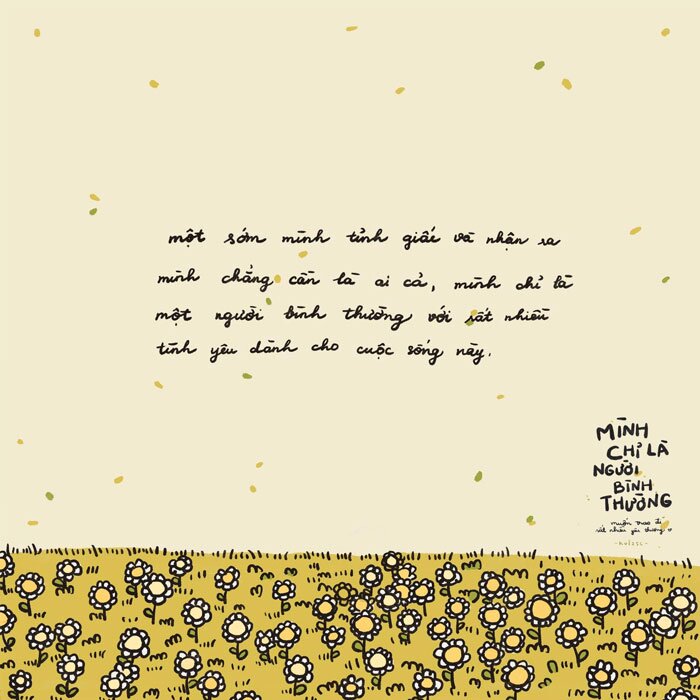 một sớm mình tỉnh giấc và nhận ra
mình chẳng cần là ai cả, mình chỉ là
một người bình thường với rất nhiều
tình yêu dành cho cuộc sống này.
MÌNH
CHỈ LÀ
NGƯỜI
BÌNH
THƯỜNG
muốn trao đi
rất nhiều yêu thương